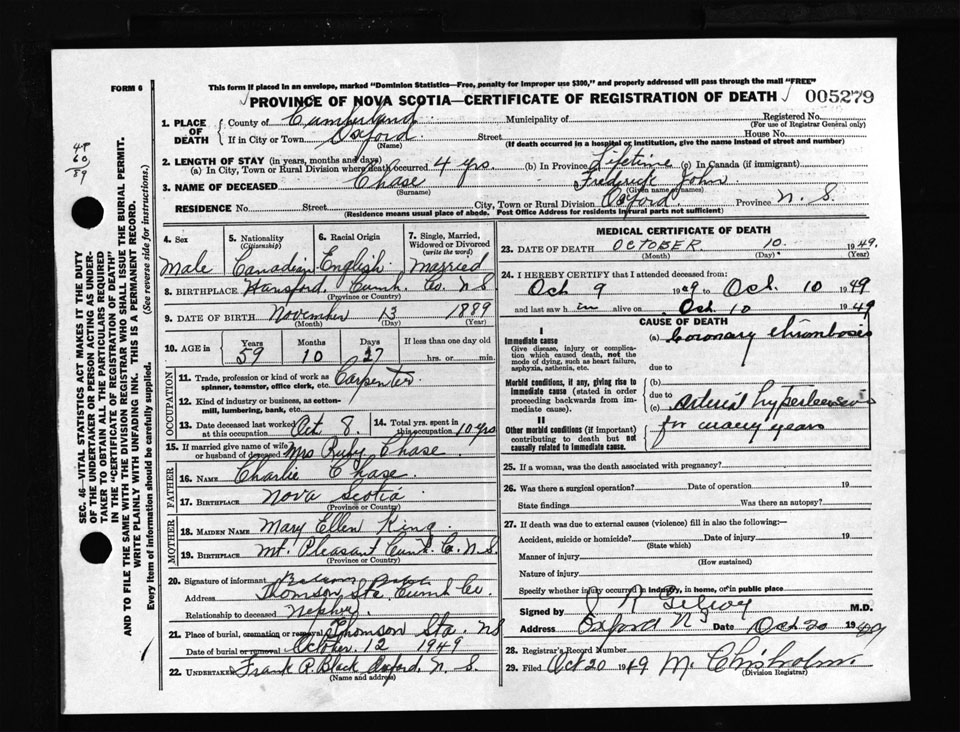 FORM 6
This form if placed in an envelope, marked "Dominion Statistics—Free, penalty for improper use $300," and properly addressed will pass through the mail "FREE"
PROVINCE OF NOVA SCOTIA—CERTIFICATE OF REGISTRATION OF DEATH
005279
1. PLACE OF DEATH
County of Cumberland Municipality of Registered No.
(For use of Registrar General only)
If in City or Town Oxford Street House No.
(Name) (If death occurred in a hospital or institution, give the name instead of street and number)
2. LENGTH OF STAY (in years, months and days)
(a) In City, Town or Rural Division where death occurred 4 yrs. (b) In Province Lifetime (c) In Canada (if immigrant)
3. NAME OF DECEASED Chase Frederick John
(Surname) (Given name or names)
RESIDENCE No. Street City, Town or Rural Division Oxford Province N. S.
(Residence means usual place of abode. Post Office Address for residents in rural parts not sufficient)
4. Sex Male
5. Nationality (Citizenship) Canadian
6. Racial Origin English
7. Single, Married, Widowed or Divorced (write the word) Married
8. BIRTHPLACE Hansford, Cumb. Co. N.S.
(Province or Country)
9. DATE OF BIRTH November 13 1889
(Month) (Day) (Year)
10. AGE in Years Months Days If less than one day old
59 10 27 hrs. or min.
OCCUPATION
11. Trade, profession or kind of work as spinner, teamster, office clerk, etc. Carpenter
12. Kind of industry or business, as cotton-mill, lumbering, bank, etc.
13. Date deceased last worked at this occupation Oct 8. 14. Total yrs. spent in this occupation 10 yrs
15. If married give name of wife or husband of deceased Mrs Ruby Chase
FATHER
16. NAME Charlie Chase
17. BIRTHPLACE Nova Scotia
(Province or Country)
MOTHER
18. MAIDEN NAME Mary Ellen King
19. BIRTHPLACE Mt. Pleasant Cumb. Co. N.S.
(Province or Country)
20. Signature of informant
Address Thomson Sta. Cumb Co.
Relationship to deceased Nephew
21. Place of burial, cremation or removal Thomson Sta. NS
Date of burial or removal October 12 1949
22. UNDERTAKER Frank P. Black Oxford, N. S.
(Name and address)
MEDICAL CERTIFICATE OF DEATH
23. DATE OF DEATH OCTOBER 10 1949.
(Month) (Day) (Year)
24. I HEREBY CERTIFY that I attended deceased from:
Oct 9 1949 to Oct. 10 1949
and last saw h im alive on Oct. 10 1949
CAUSE OF DEATH
I
Immediate cause
Give disease, injury or complication which caused death, not the mode of dying, such as heart failure, asphyxia, asthenia, etc.
(a) Coronary thrombosis
due to
Morbid conditions, if any, giving rise to immediate cause (stated in order proceeding backwards from immediate cause).
(b)
due to
(c) Arterial hypertension
for many years
II
Other morbid conditions (if important) contributing to death but not causally related to immediate cause.
25. If a woman, was the death associated with pregnancy?
26. Was there a surgical operation? Date of operation 19
State findings Was there an autopsy?
27. If death was due to external causes (violence) fill in also the following:—
Accident, suicide or homicide? Date of injury 19
(State which)
Manner of injury
(How sustained)
Nature of injury
Specify whether injury occurred in industry, in home, or in public place
Signed by M.D.
Address Oxford NS Date Oct 20 1949
28. Registrar's Record Number
29. Filed Oct 20 1949 M. Chisholm
(Division Registrar)
SEC. 46—VITAL STATISTICS ACT MAKES IT THE DUTY
OF THE UNDERTAKER OR PERSON ACTING AS UNDER-
TAKER TO OBTAIN ALL THE PARTICULARS REQUIRED
IN THE "CERTIFICATE OF REGISTRATION OF DEATH"
AND TO FILE THE SAME WITH THE DIVISION REGISTRAR WHO SHALL ISSUE THE BURIAL PERMIT.
WRITE PLAINLY WITH UNFADING INK. THIS IS A PERMANENT RECORD.
Every item of information should be carefully supplied. (See reverse side for instructions.)